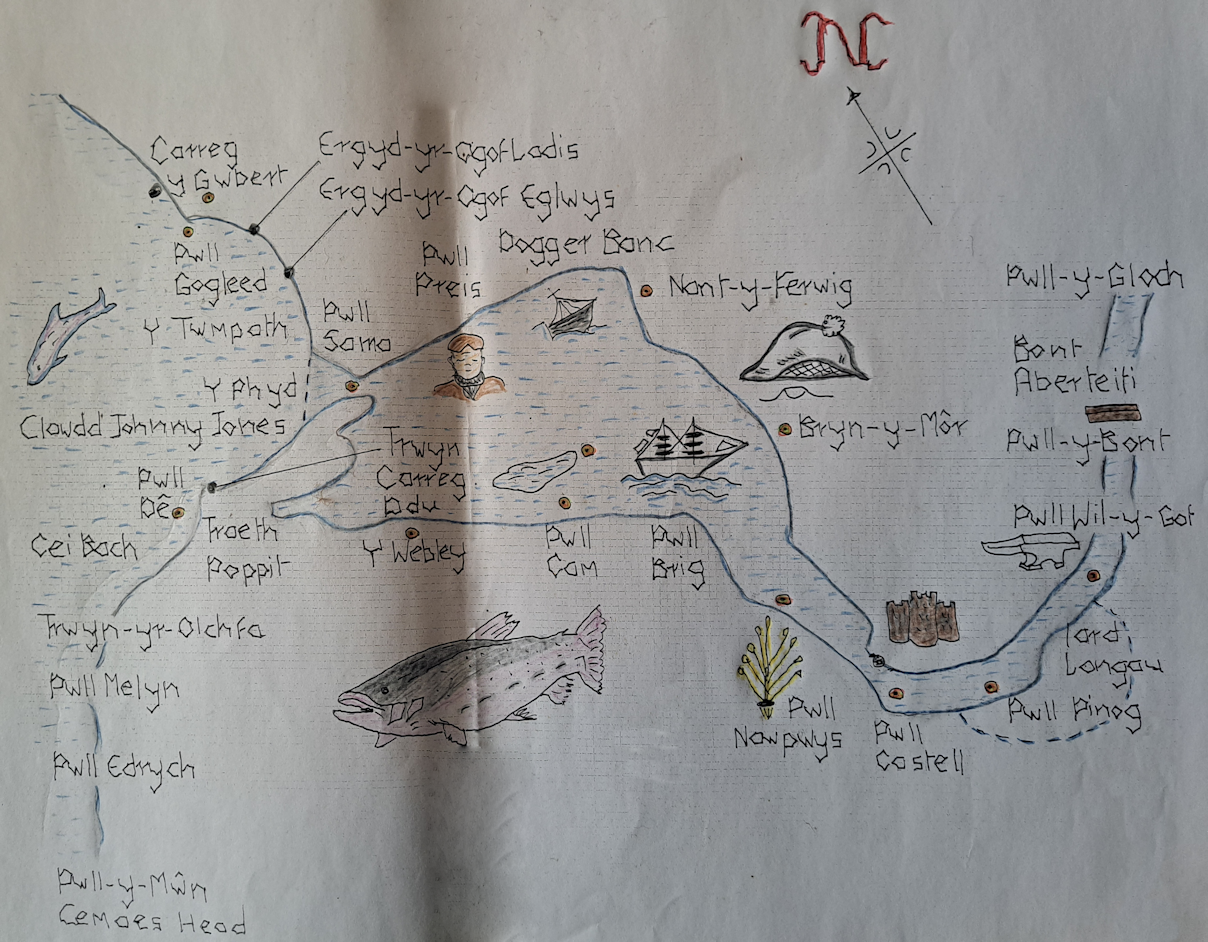 N
Carreg
y Gwbert
Ergyd-yr-Ogof Ladis
Ergyd-yr-Ogof Eglwys
Pwll
Gogleed
Y Twmpath
Pwll
Preis
Dogger Banc
Pwll
Sama
Nant-y-Ferwig
Pwll-y-Gloch
Bont
Aberteifi
Pwll-y-Bont
Bryn-y-Môr
Y Phyd
Clawdd Johnny Jones
Trwyn
Carreg
Ddu
Pwll
Dê
Traeth
Poppit
Cei Bach
Y Webley
Pwll
Cam
Pwll
Brig
Pwll Wil-y-Gof
Trwyn-yr-Olchfa
Iard
Longau
Pwll Melyn
Pwll
Nawpwys
Pwll
Castell
Pwll Pinog
Pwll Edrych
Pwll-y-Mŵn
Cemaes Head